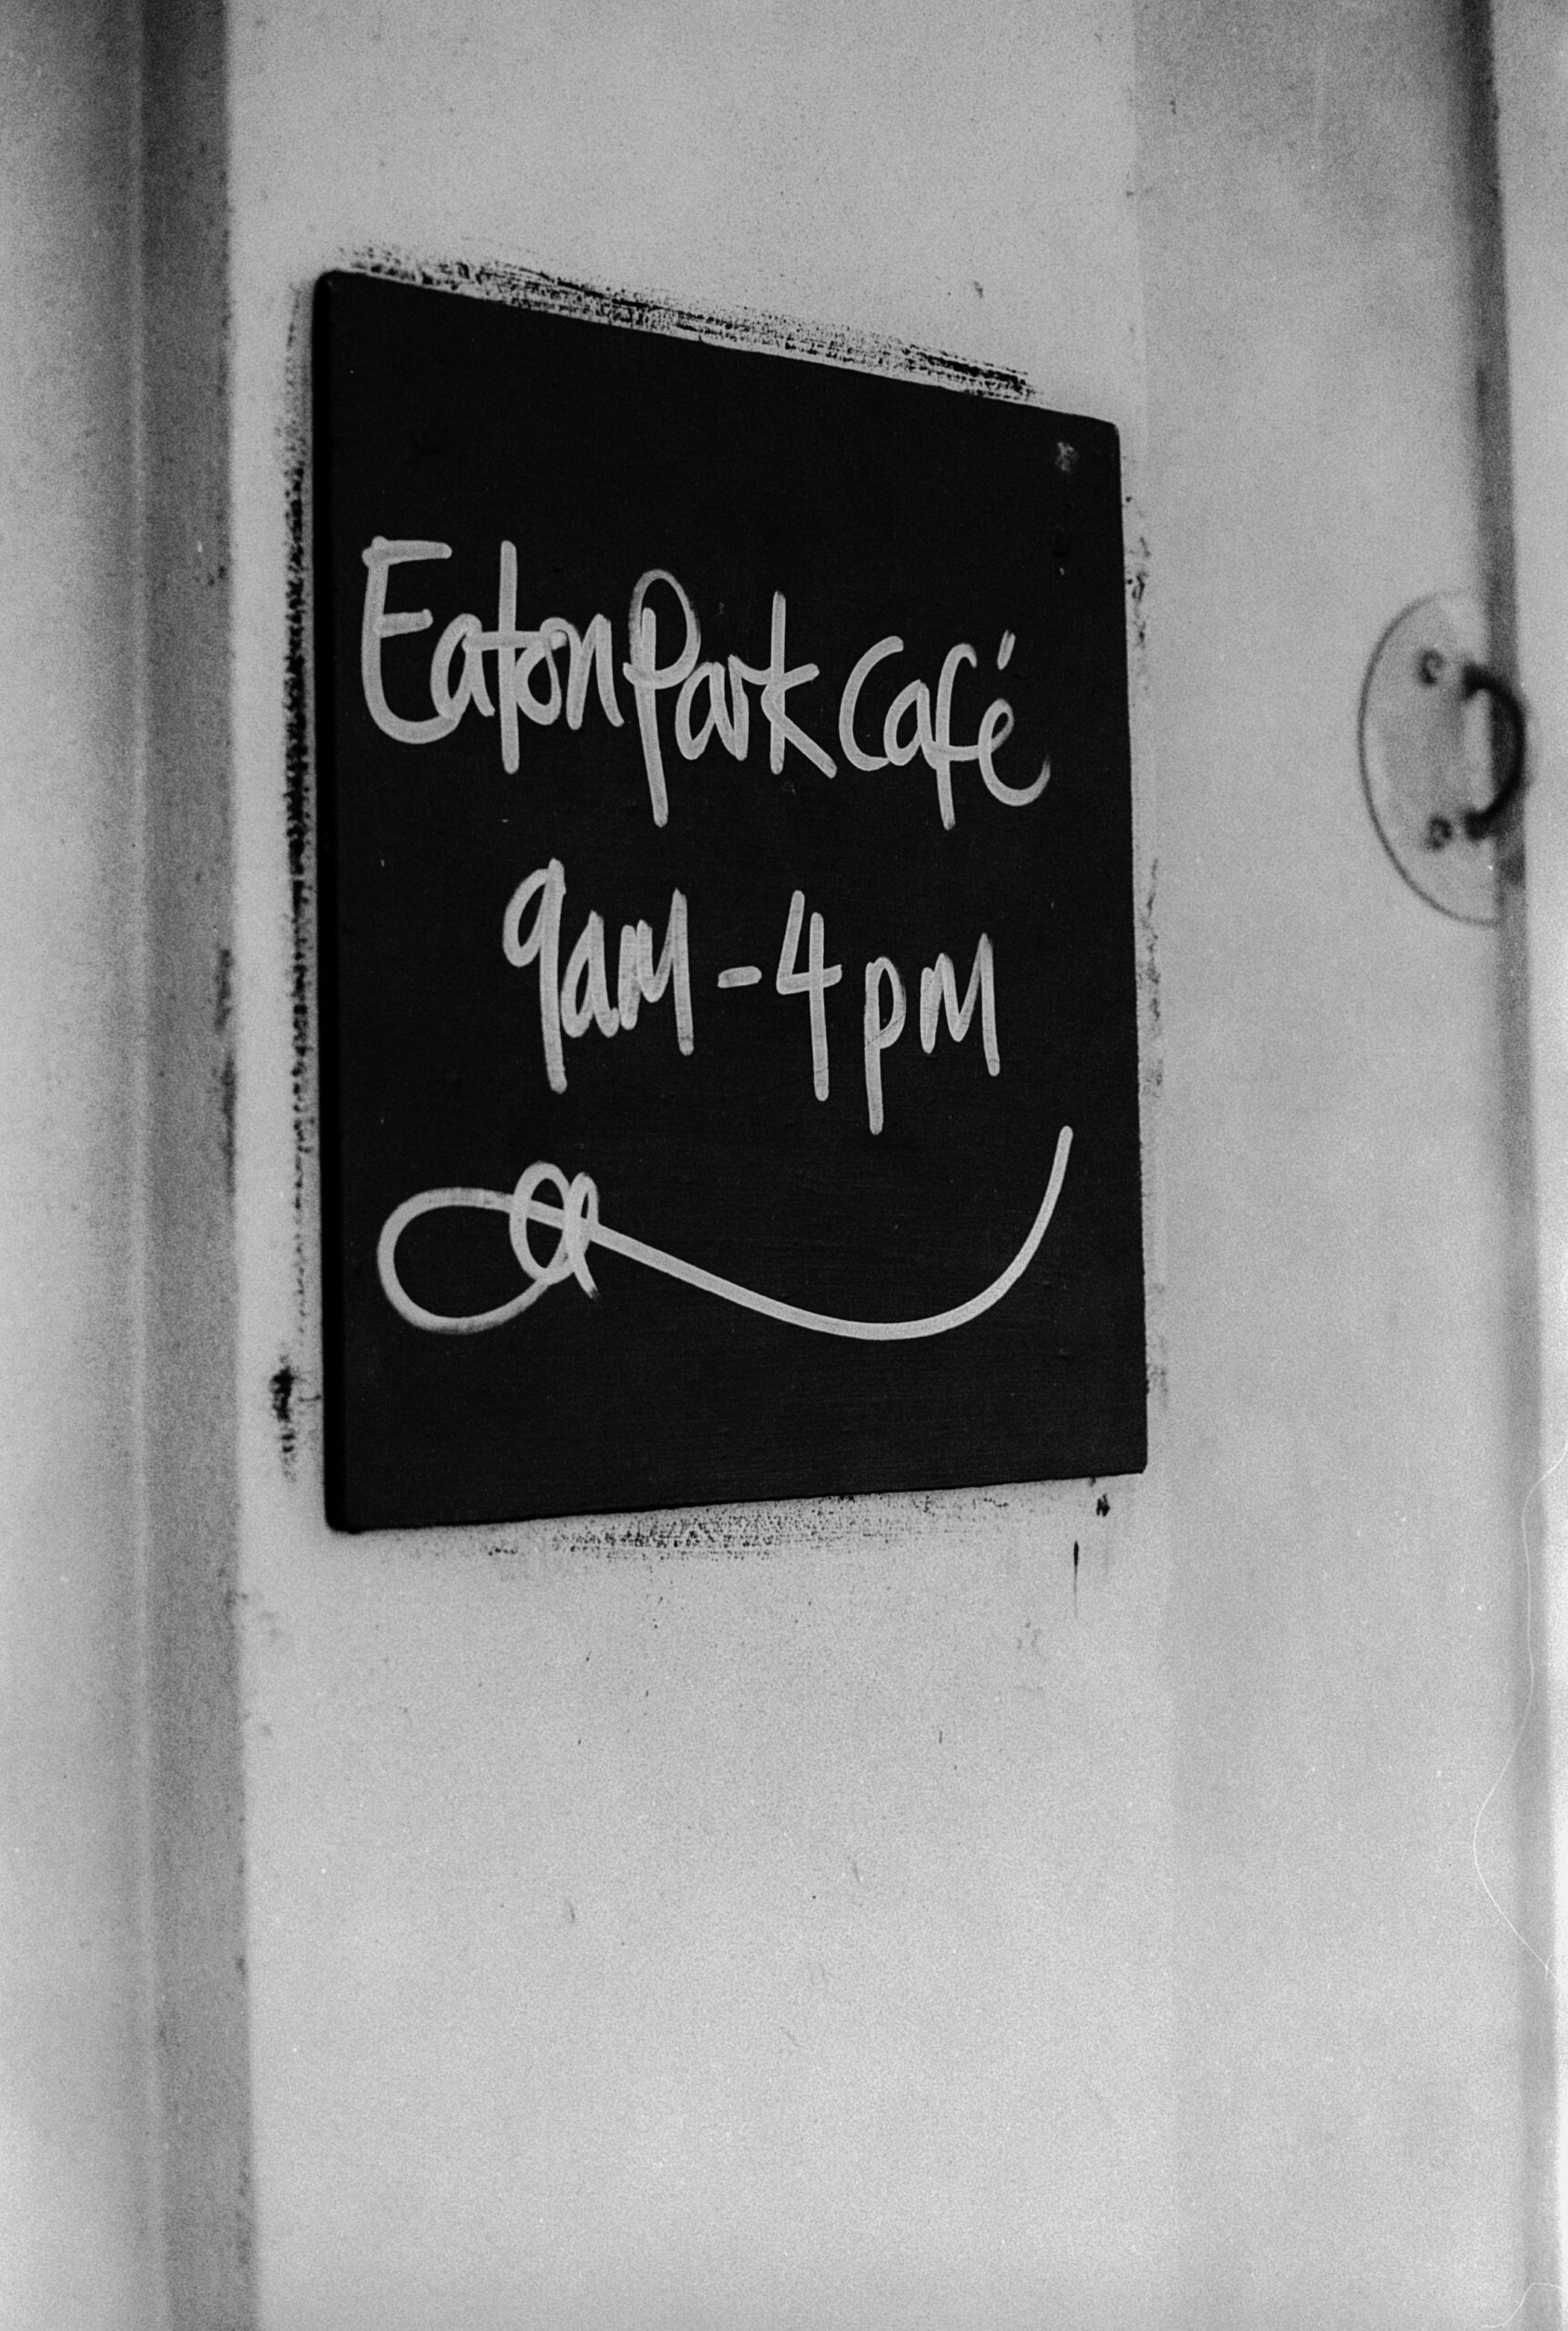 Eaton Park Café
9am - 4pm